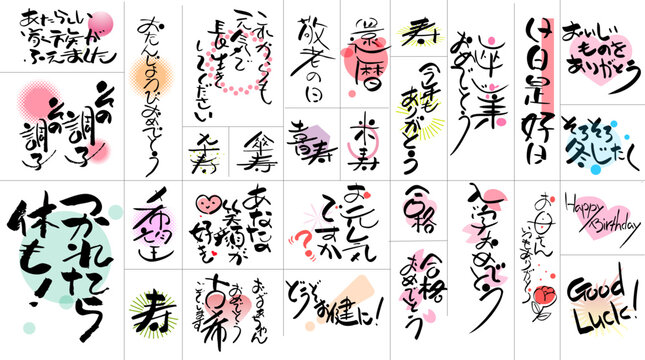 あたらしい
家族が
ふえました
その調子
その調子
おたんじょうびおめでとう
これからも
元気で
長生き
してください
敬老の日
還暦
寿
今年も
ありがとう
卒業
おめでとう
日日是好日
おいしい
ものを
ありがとう
そろそろ
冬じたく
傘寿
喜寿
米寿
つかれたら
休も!
希望
寿
あなたの
笑顔が
好き
おじいちゃん
おめでとう
ございます
古希
お元気
ですか
?
どうぞお健に!
合格
合格
おめでとう
入学おめでとう
お母さん
いつもありがとう
Happy
Birthday
Good
Luck!